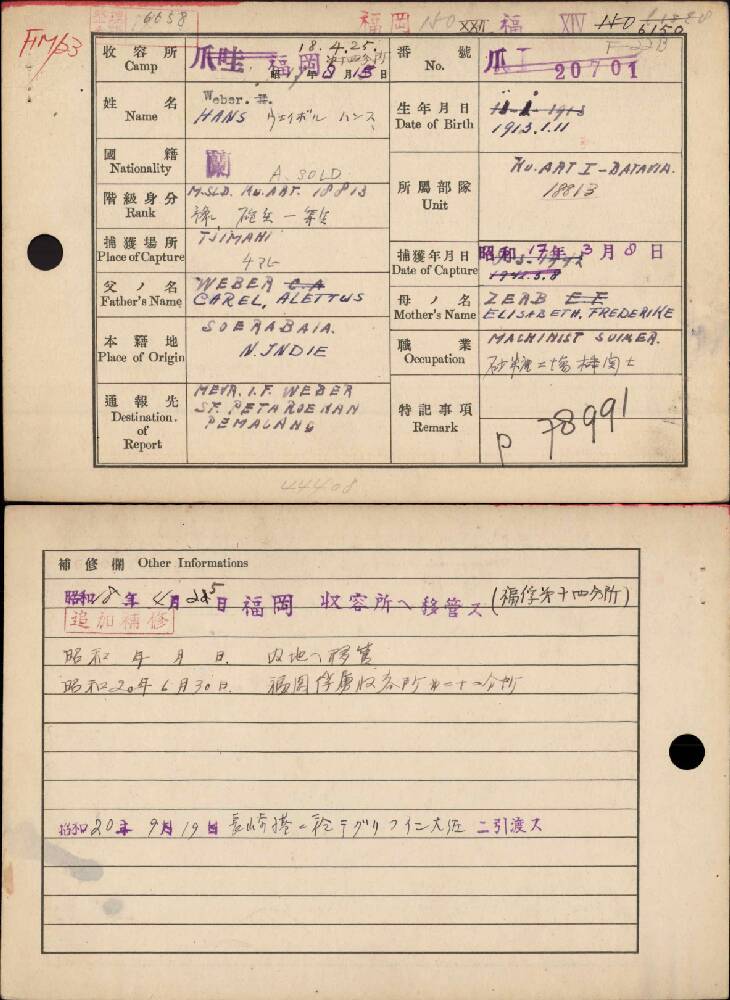 整理 16658
福岡 150 XXII 福 XIV 150
6150
F-22B
HM/23
収容所 Camp
爪哇 福岡 18.4.25.
昭 年8月15日
番號 No.
爪I 20701
姓名 Name
Weber. H.
HANS ウェイボル ハンス
生年月日 Date of Birth
11-1-1913
1913.1.11
國籍 Nationality
蘭
A. SOLD
階級身分 Rank
M.SLD. KU.ART. 18813
砲兵一等兵
所屬部隊 Unit
KU.ART I-BATAVIA.
18813
捕獲場所 Place of Capture
TJIMAHI
チマヒ
捕獲年月日 Date of Capture
昭和 17年 3月 8日
1942.3.8
父ノ名 Father's Name
WEBER C.A
CAREL, ALETTUS
母ノ名 Mother's Name
ZERB E.F
ELISABETH, FREDERIKE
本籍地 Place of Origin
SOERABAIA.
N.INDIE
職業 Occupation
MACHINIST SUIKER.
砂糖工場機関士
通報先 Destination of Report
MEVR. I.F. WEBER
ST. PETAROEMAN
PEMALANG
特記事項 Remark
P 78991
44408
補修欄 Other Informations
昭和18年4月25日 福岡 収容所へ移管ス (福俘第十四分所)
追加補修
昭和 年 月 日. 内地へ移管
昭和20年6月30日. 福岡俘虜収容所第二十二分所
昭和20年9月19日 長崎港ニ於テ 大佐ニ引渡ス